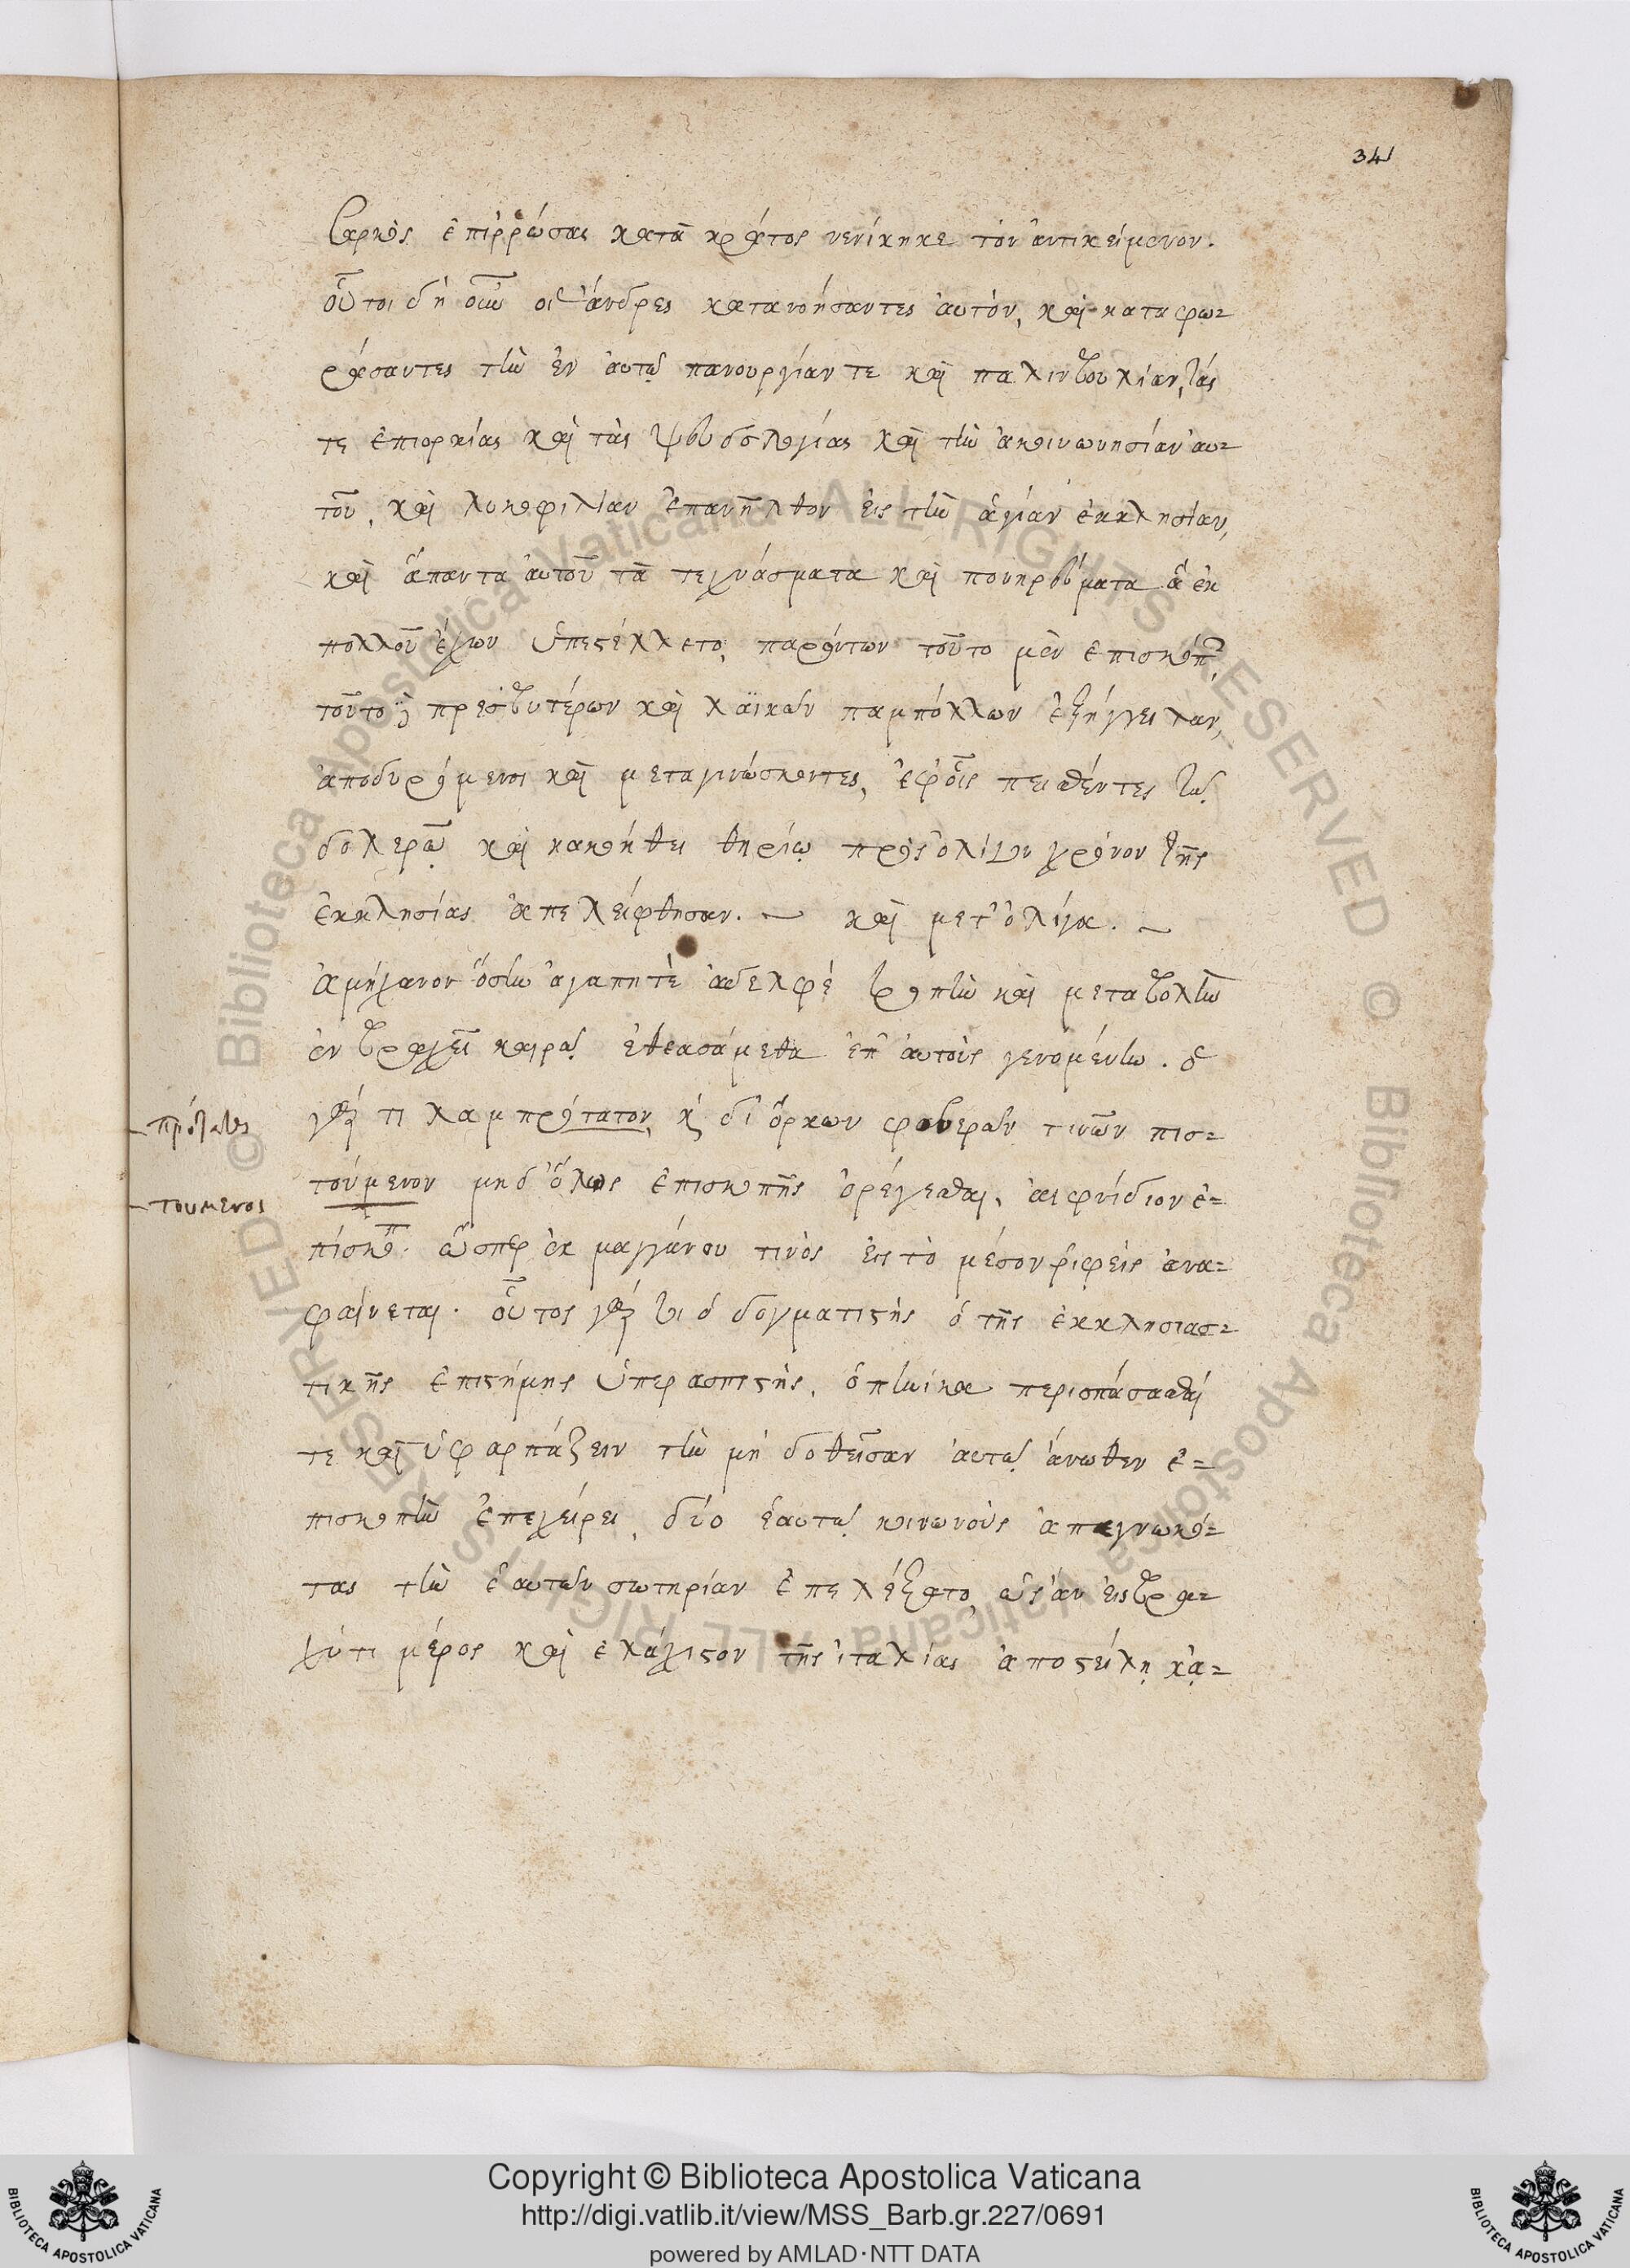 34
σαρκὸς ἐπιῤῥώσας κατὰ κράτος νενίκηκε τὸν ἀντικείμενον.
οὗτοι δὴ οὖν οἱ ἄνδρες κατανοήσαντες αὐτὸν, καὶ καταφω-
ράσαντες τὴν ἐν αὐτῷ πανουργίαν τε καὶ παλιμβουλίαν, τάς
τε ἐπιορκίας καὶ τὰς ψευδολογίας καὶ τὴν ἀκοινωνησίαν αὐ-
τοῦ, καὶ λυκοφιλίαν ἐπανῆλθον εἰς τὴν ἁγίαν ἐκκλησίαν,
καὶ ἅπαντα αὐτοῦ τὰ τεχνάσματα καὶ πονηρεύματα ἃ ἐκ
πολλοῦ ἔχων ὑπεστέλλετο, παρόντων τοῦτο μὲν ἐπισκόπ
τοῦτο δὲ πρεσβυτέρων καὶ λαϊκῶν παμπόλλων ἐξήγγειλαν,
ἀποδυρόμενοι καὶ μεταγινώσκοντες, ἐφ' οἷς πεισθέντες τῷ
δολερῷ καὶ κακοήθει θηρίῳ πρὸς ὀλίγον χρόνον τῆς
ἐκκλησίας ἀπελείφθησαν. ~ καὶ μετ' ὀλίγα. ~
ἀμήχανον ὅσην ἀγαπητὲ ἀδελφὲ τροπὴν καὶ μεταβολὴν
ἐν βραχεῖ καιρῷ ἐθεασάμεθα ἐπ' αὐτοὺς γενομένην. ὁ
γάρ τι λαμπρότατον, κ δι' ὅρκων φοβερῶν τινῶν πισ-
τούμενον μηδ' ὅλως ἐπισκοπῆς ὀρέγεσθαι, αἰφνίδιον ἐ-
πίσκοπ. ὥσπερ ἐκ μαγγάνου τινὸς εἰς τὸ μέσον ῥιφεὶς ἀνα-
φαίνεται. οὗτος γάρ τοι ὁ δογματιστὴς ὁ τῆς ἐκκλησιασ-
τικῆς ἐπιστήμης ὑπερασπιστὴς, ὁπηνίκα περισπάσασθαί
τε καὶ ὑφαρπάζειν τὴν μὴ δοθεῖσαν αὐτῷ ἄνωθεν ἐ-
πισκοπὴν ἐπεχείρει, δύο ἑαυτῷ κοινωνοὺς ἀπεγνωκό-
τας τὴν ἑαυτῶν σωτηρίαν ἐπελέξατο, ὡς ἂν εἰς βρα-
χύ τι μέρος καὶ ἐλάχιστον τῆς ἰταλίας ἀποστείλῃ κἀ-
τουμενος
Copyright © Biblioteca Apostolica Vaticana
http://digi.vatlib.it/view/MSS_Barb.gr.227/0691
powered by AMLAD·NTT DATA
BIBLIOTECA APOSTOLICA VATICANA
BIBLIOTECA APOSTOLICA VATICANA